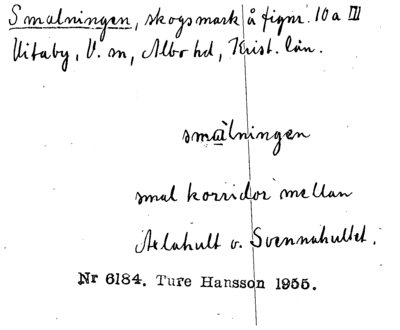 Smalningen, skogsmark å fignr. 10a III
Vitaby, V. m, Albo hd, Krist. län.
smalningen
smal korridor mellan
Aelahult o. Svennahultet.
Nr 6184. Ture Hansson 1955.